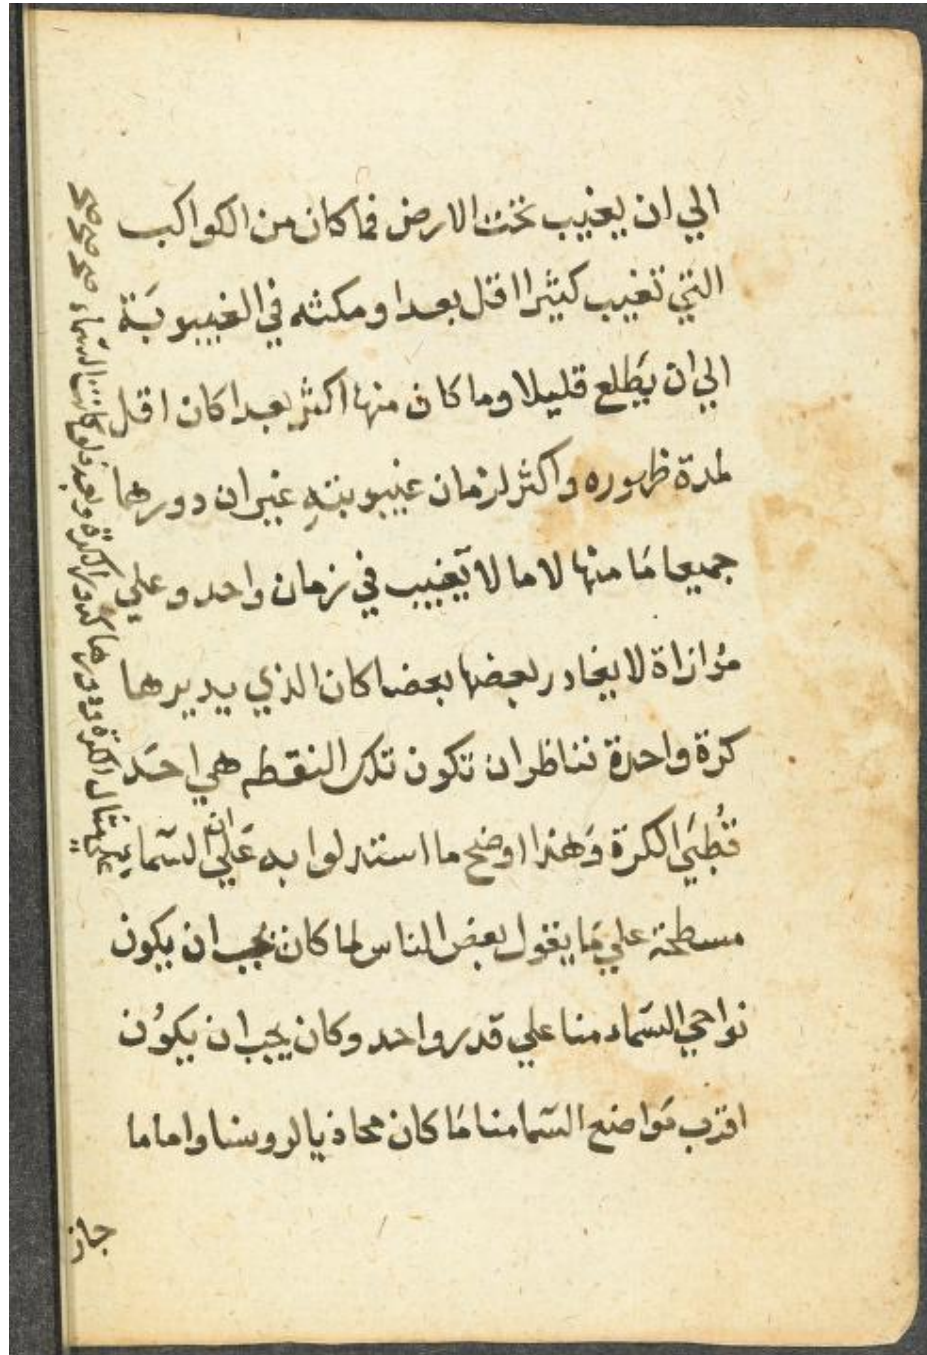 الي ان يغيب تحت الارض فما كان من الكواكب
التي تغيب كثيرا اقل بعدا ومكثه في الغيبوبَة
الي ان يَطلع قليلا وما كان منها اكثر بعدا كان اقل
لمدة ظهوره واكثر لزمان غيبوبتهِ غير ان دورهما
جميعا مَا منها لا ما لا يغيب في زمان واحد وعلي
مُوازاة لا يغادر بعضها بعضا كان الذي يديرها
كرة واحدة تناظر ان تكون تلك النقطه هي احَد
قُطبَي الكرة وَهذا اوضح ما استدلوا به عَلي ان السَماءِ
مسطحة علي مَا يقول بعض الناس لما كان يجب ان يكون
نواحي السَماء منا علي قدر واحد وكان يجب ان يكوُن
اقرب مَواضع السَما منا مَا كان محاذيا لروسنا واما ما
علي مثال الكرة ودورها كدور الكرة وبعد فلو كانت السَماء صح صح صح
جاز